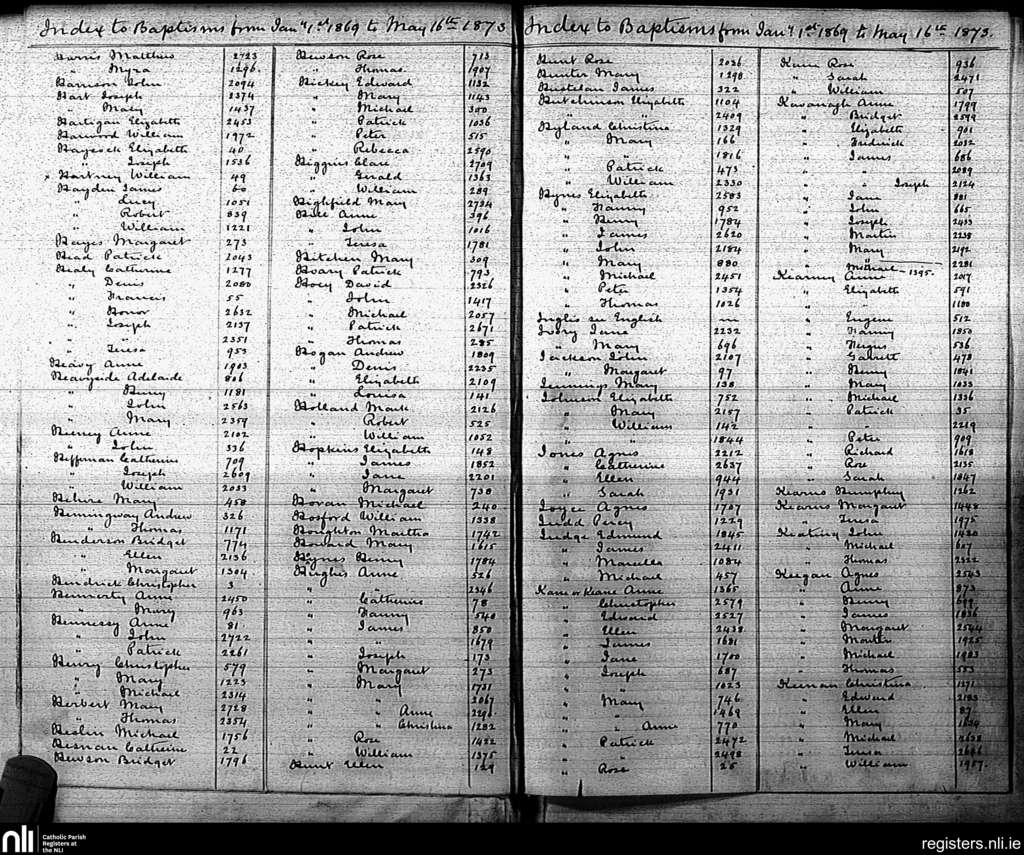 Index to Baptisms from Jany 1st 1869 to May 16th 1873.
Harris Matthias 2723
" Myra 1296
Harrison John 2094
Hart Joseph 2374
" Mary 1437
Hartigan Elizabeth 2453
Harwood William 1972
Haycock Elizabeth 40
" Joseph 1536
x Hartney William 49
Hayden James 60
" Lucy 1051
" Robert 839
" William 1221
Hayes Margaret 273
Head Patrick 2043
Healy Catherine 1277
" Denis 2080
" Francis 55
" Honor 2632
" Joseph 2137
" " 2351
" Teresa 953
Heavy Anne 1903
Heavyside Adelaide 806
" Henry 1181
" John 2563
" Mary 2359
Heeney Anne 2102
" John 336
Heffernan Catherine 709
" Joseph 2609
" William 2033
Hehire Mary 458
Hemingway Andrew 326
" Thomas 1171
Henderson Bridget 774
" Ellen 2136
" Margaret 1304
Hendrick Christopher 3
Hennerty Anne 2450
" Mary 963
Hennessy Anne 81
" John 2722
" Patrick 2261
Henry Christopher 579
" Mary 1223
" Michael 2314
Herbert Mary 2728
" Thomas 2354
Heslin Michael 1756
Hesnan Catherine 22
Hewson Bridget 1796
Hewson Rose 713
" Thomas 1907
Hickey Edward 1132
" Mary 1143
" Michael 300
" Patrick 1036
" Peter 515
" Rebecca 2590
Higgins Clare 2709
" Gerald 1363
" William 289
Highfield Mary 2734
Hill Anne 396
" John 1016
" Teresa 1781
Hitchen Mary 309
Hoary Patrick 793
Hoey David 2326
" John 1417
" Michael 2057
" Patrick 2671
" Thomas 285
Hogan Andrew 1809
" Denis 2235
" Elizabeth 2109
" Louisa 141
Holland Mark 2126
" Robert 525
" William 1052
Hopkins Elizabeth 148
" James 1852
" Jane 2201
" Margaret 738
Horan Michael 240
Hosford William 1338
Houghton Martha 1742
Howard Mary 1615
Hynes Henry 1784
Hughes Anne 526
" " 2346
" Catherine 78
" Fanny 540
" James 850
" " 1679
" Joseph 173
" Margaret 273
" Mary 1731
" " 2067
" " Anne 2296
" " Christina 1282
" Rose 1422
" William 1375
Hunt Ellen 129
Index to Baptisms from Jany 1st 1869 to May 16th 1873.
Hunt Rose 2036
Hunter Mary 1298
Hustelan James 322
Hutchinson Elizabeth 1104
" " 2409
Hyland Christina 1329
" Mary 166
" " 1816
" Patrick 473
" William 2330
Hynes Elizabeth 2583
" Fanny 952
" Henry 1784
" James 2620
" John 2184
" Mary 880
" Michael 2451
" Peter 1354
" Thomas 1026
Inglis see English
Ivory Jane 2232
" Mary 696
Jackson John 2107
" Margaret 97
Jennings Mary 138
Johnson Elizabeth 752
" Mary 2157
" William 142
" " 1844
Jones Agnes 2212
" Catherine 2637
" Ellen 944
" Sarah 1931
Joyce Agnes 1707
Judd Percy 1229
Judge Edmund 1845
" James 2411
" Marcella 1084
" Michael 457
Kane or Keane Anne 1365
" Christopher 2579
" Edward 2527
" Ellen 2438
" James 1681
" Jane 1750
" Joseph 687
" " 1023
" Mary 746
" " 1469
" " Anne 770
" Patrick 2472
" " 2498
" Rose 25
Kane Rose 936
" Sarah 2471
" William 507
Kavanagh Anne 1799
" Bridget 2599
" Elizabeth 901
" Frederick 2032
" James 686
" " 2089
" " Joseph 2124
" Jane 881
" John 665
" Joseph 2433
" Martin 2238
" Mary 2192
" " 2281
" Michael - 1395.
Kearney Anne 2017
" Elizabeth 591
" " 1180
" Eugene 512
" Fanny 1850
" Fergus 536
" Garrett 478
" Henry 1041
" Mary 1033
" Michael 1336
" Patrick 35
" " 2219
" Peter 909
" Richard 1618
" Rose 2135
" Sarah 1047
Kearns Humphry 1262
Kearns Margaret 1448
" Teresa 1975
Keating John 1430
" Michael 607
" Thomas 2322
Keegan Agnes 2543
" Anne 873
" Henry 699
" James 1036
" Margaret 2544
" Martin 1925
" Michael 1903
" Thomas 553
Keenan Christina 1271
" Edward 2183
" Ellen 87
" Mary 1634
" Michael 2638
" Teresa 2686
" William 1957.
nli Catholic Parish
Registers at
the NLI
registers.nli.ie